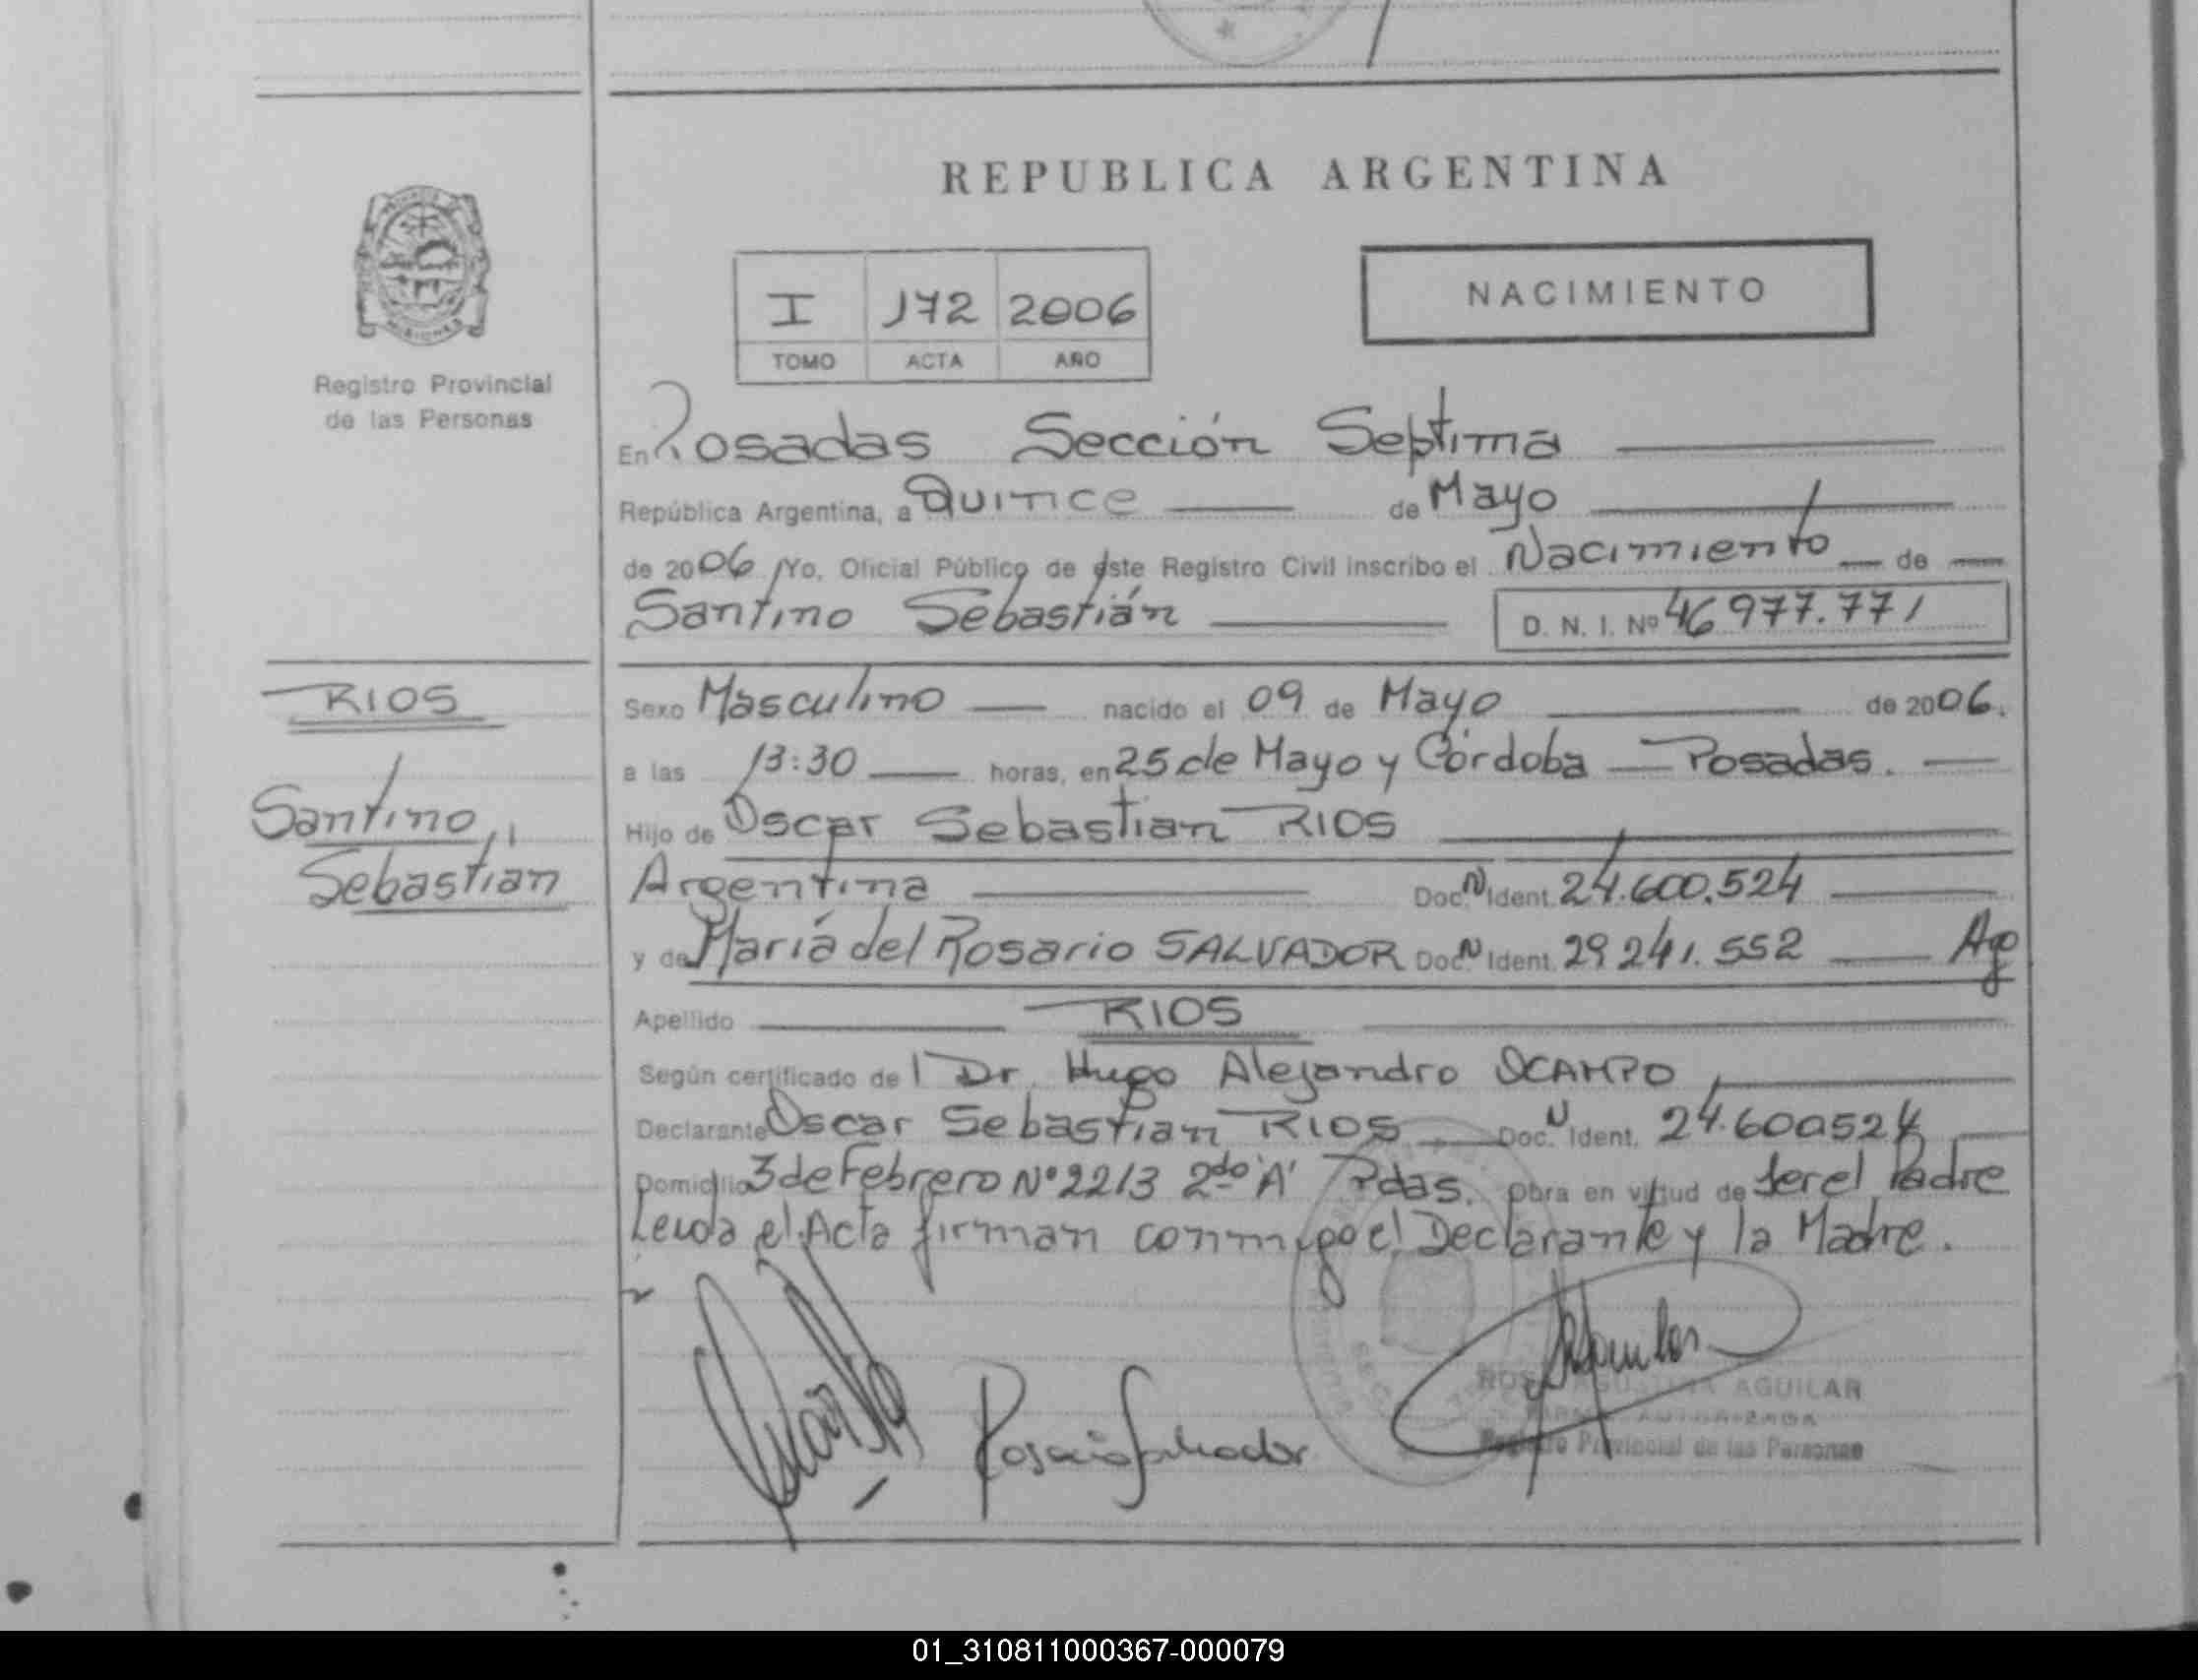 REPUBLICA ARGENTINA
MISIONES
Registro Provincial
de las Personas
I 172 2006
TOMO ACTA AÑO
NACIMIENTO
En Posadas Sección Septima
República Argentina, a Quince de Mayo
de 2006 Yo, Oficial Público de este Registro Civil inscribo el Nacimiento de
Santino Sebastián D. N. I. Nº 46977.771
RIOS
Santino
Sebastián
Sexo Masculino nacido el 09 de Mayo de 2006.
a las 13:30 horas, en 25 de Mayo y Córdoba — Posadas.
Hijo de Oscar Sebastian RIOS
Argentina Doc. N Ident. 24.600.524
y de María del Rosario SALVADOR Doc. N Ident. 29 241.552
Apellido RIOS
Según certificado de l Dr. Hugo Alejandro OCAMPO
Declarante Oscar Sebastian RIOS Doc. N Ident. 24.600524
Domicilio 3 de Febrero Nº 2213 2do 'A' Pdas. Obra en virtud de ser el Padre
Leída el Acta firman conmigo el Declarante y la Madre.
Rosario Salvador
AGUILAR
Registro Provincial de las Personas
01_310811000367-000079